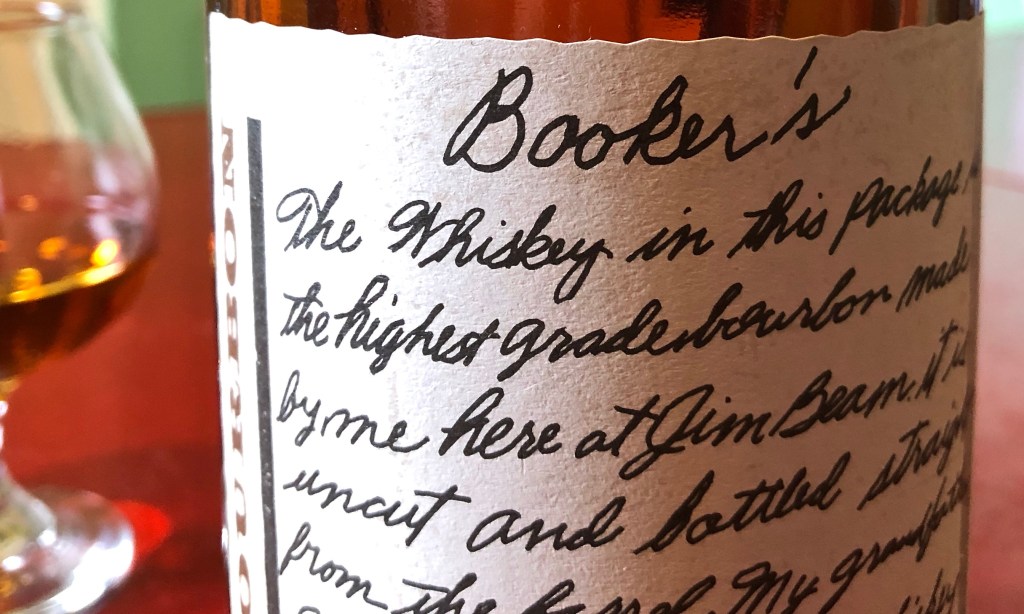 BOURBON
Booker's
The Whiskey in this package
the highest grade bourbon made
by me here at Jim Beam. it is
uncut and bottled straight
from the barrel. My grandfather